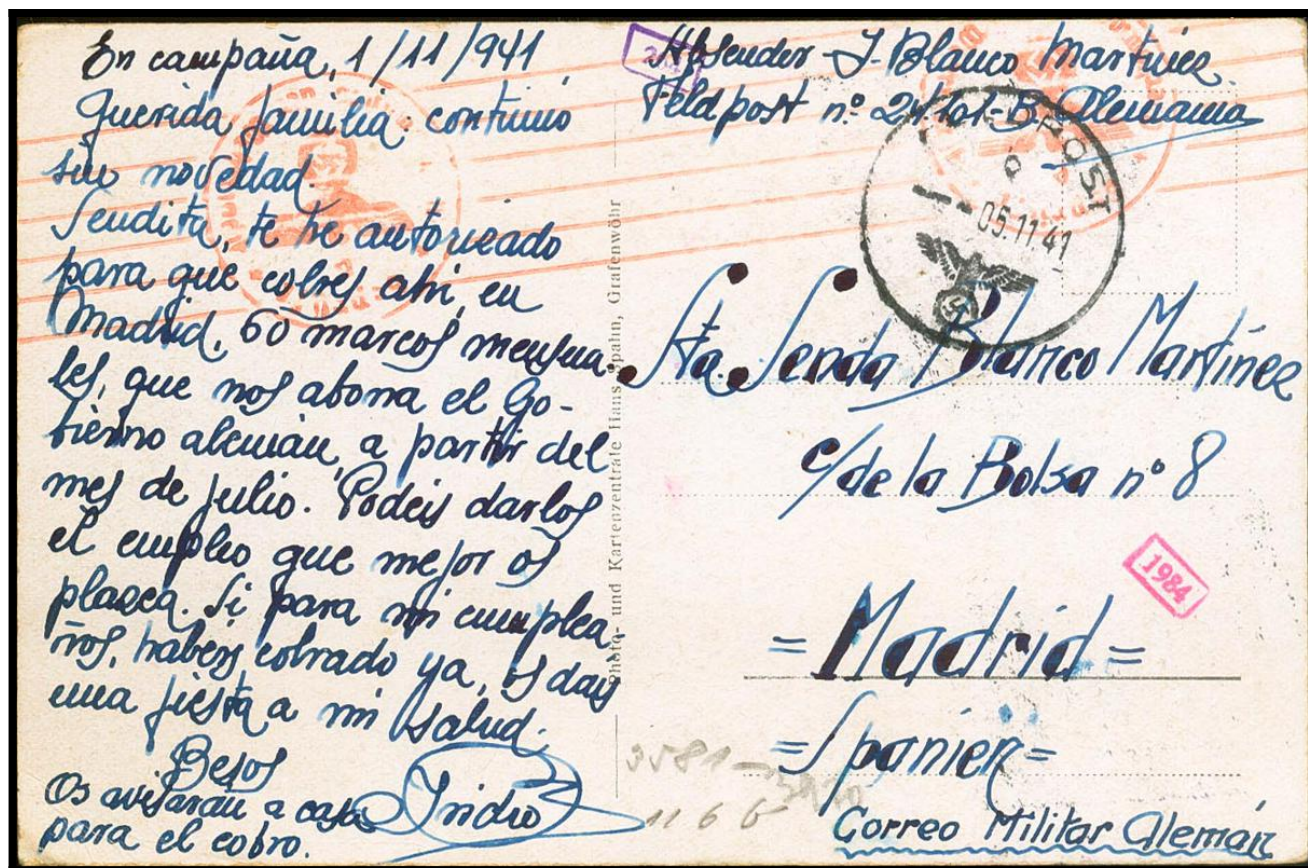 En campaña, 1/11/941
Querida familia: continúo
sin novedad.
Sendita, te he autorizado
para que cobres ahí, en
Madrid, 60 marcos mensua
les, que nos abona el Go-
bierno alemán, a partir del
mes de julio. Podeis darlos
el empleo que mejor os
plazca. Si para mi cumplea
ños, habeis cobrado ya, os dais
una fiesta a mi salud.
Besos
Isidro
Os avisarán a casa
para el cobro.
Photo- und Kartenzentrale Hans Spahn, Grafenwöhr
Absender - J. Blanco Martínez
Feldpost n.º -B. Alemania
FELDPOST
05.11.41
Sta. Senda Blanco Martínez
c/ de la Bolsa nº 8
1984
= Madrid =
= Spanien =
Correo Militar Alemán
1166